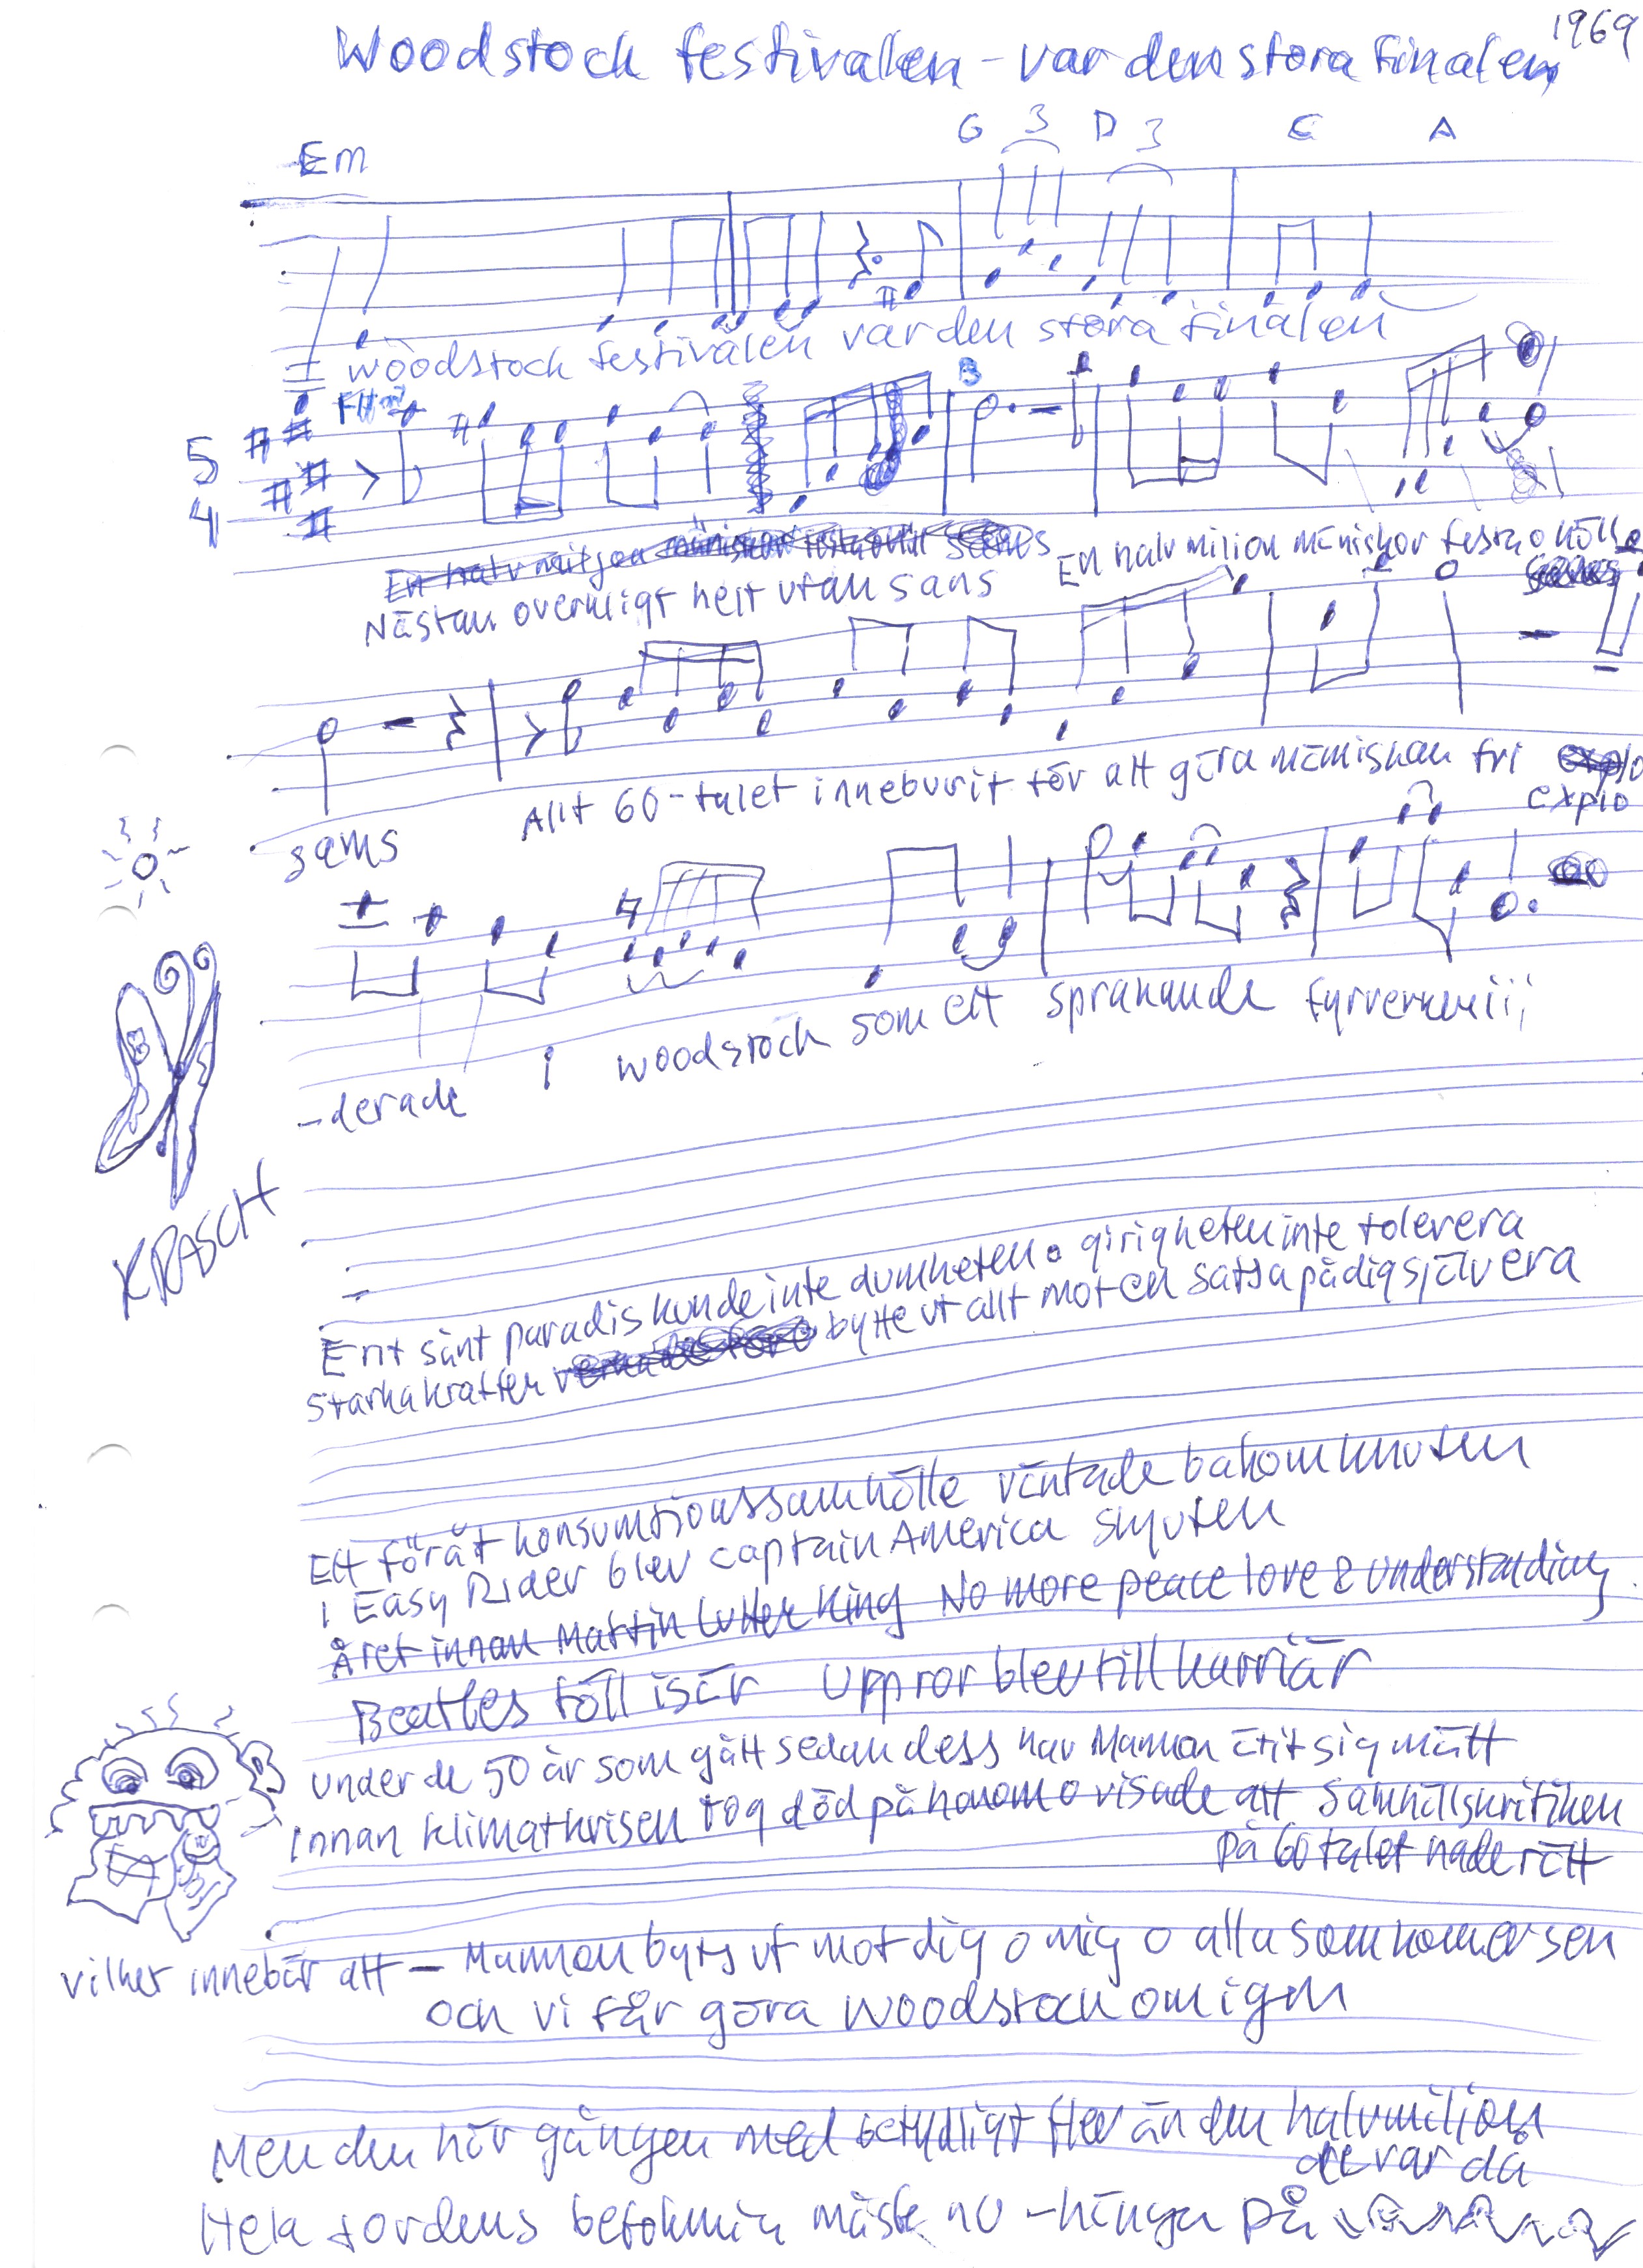 1969
Woodstock festivalen - var den stora finalen
G 3 D 3 C A
Em
woodstock festivalen var den stora finalen
F#m B
5
4
En halv miljon människor
Nästan overkligt helt utan sans En halv miljon mäniskor festa o hölls
sams Allt 60-talet inneburit för att göra människan fri explo
-derade i woodstock som ett sprakande fyrverkeriii
KRASCH
Ett sånt paradis kunde inte dumheten o girigheten inte tolerera
Starka krafter bytte ut allt mot en satsa på dig själv era
Ett förät konsumtionssamhälle väntade bakom knuten
i Easy Rider blev captain America skjuten
Året innan Martin Luther King No more peace love & understanding
Beatles föll isär Uppror blev till karriär
Under de 50 år som gått sedan dess har Mammon ätit sig mätt
innan klimatkrisen tog död på honom o visade att Samhällskritiken
på 60 talet hade rätt
vilket innebär att - Mammon byts ut mot dig o mig o alla som kommer sen
och vi får göra woodstock om igen
Men den här gången med betydligt fler än den halvmiljon
de var då
Hela jordens befolkning måste nu - hänga på